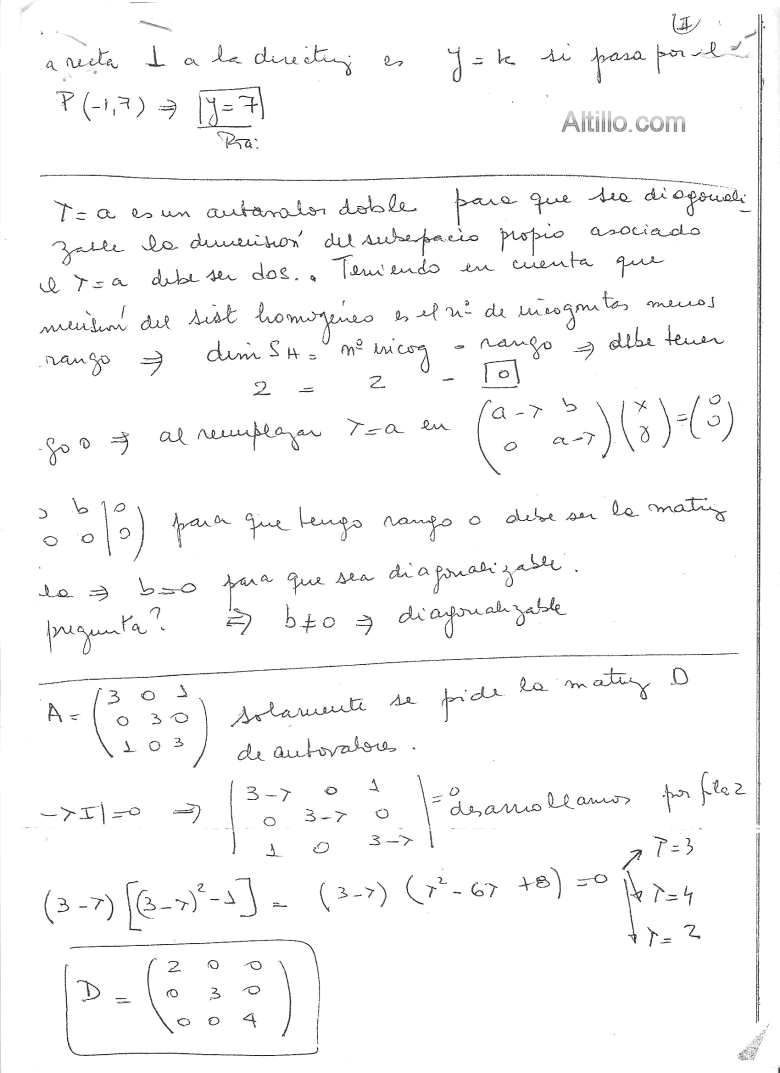 II
a recta ⊥ a la directriz es y = k si pasa por el
P(-1,7) ⇒ y = 7
Altillo.com
Rta:
λ = a es un autovalor doble para que sea diagonali-
zable la dimensión del subespacio propio asociado
a λ = a debe ser dos.. Teniendo en cuenta que
mensión del sist homogéneo es el nº de incognitas menos
rango ⇒ dim SH = nº incog - rango ⇒ debe tener
2 = 2 - 0
go 0 ⇒ al remplazar λ = a en (a-λ b; 0 a-λ).(x; y) = (0; 0)
(0 b | 0; 0 0 | 0) para que tenga rango 0 debe ser la matriz
la ⇒ b=0 para que sea diagonalizable.
pregunta? ⇒ b≠0 ⇒ diagonalizable
A = (3 0 1; 0 3 0; 1 0 3) solamente se pide la matriz D
de autovalores.
-λI|=0 ⇒ |3-λ 0 1; 0 3-λ 0; 1 0 3-λ| = 0 desarrollamos por fila 2
(3-λ)[(3-λ)²-1] = (3-λ)(λ²-6λ+8) = 0
λ=3
λ=4
λ=2
D = (2 0 0; 0 3 0; 0 0 4)